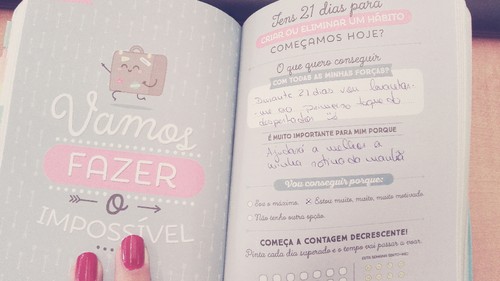 Vamos
FAZER
O
IMPOSSÍVEL
Tens 21 dias para
CRIAR OU ELIMINAR UM HÁBITO
COMEÇAMOS HOJE?
O que quero conseguir
COM TODAS AS MINHAS FORÇAS?
Durante 21 dias vou levantar-
me ao primeiro toque do
despertador
É MUITO IMPORTANTE PARA MIM PORQUE
Ajudará a melhorar a
minha rotina da manhã
Vou conseguir porque:
Sou o máximo. Estou muito, muito, muito motivado.
Não tenho outra opção.
COMEÇA A CONTAGEM DECRESCENTE!
Pinta cada dia superado e o tempo vai passar a voar.